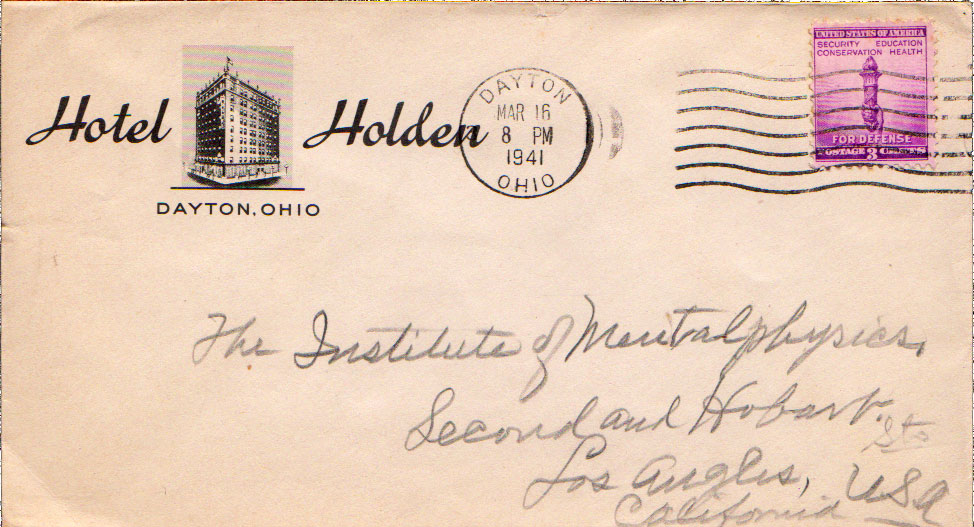 Hotel Holden
DAYTON, OHIO
DAYTON
MAR 16
8 PM
1941
OHIO
UNITED STATES OF AMERICA
SECURITY EDUCATION
CONSERVATION HEALTH
FOR DEFENSE
POSTAGE 3 CENTS
The Institute of Mentalphysics,
Second and Hobart Sts
Los Angles, USA
California